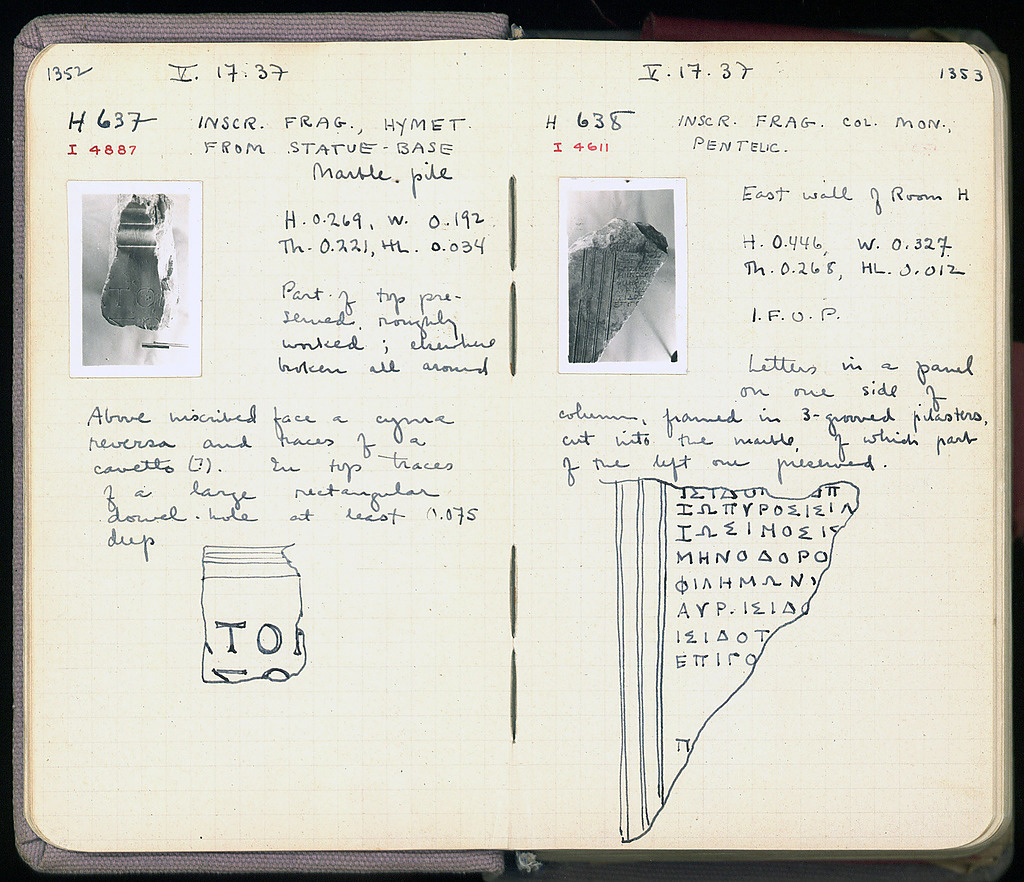 1352
V. 17. 37
H 637
INSCR. FRAG., HYMET.
I 4887
FROM STATUE-BASE
Marble pile
H. 0.269, W. 0.192
Th. 0.221, HL. 0.034
Part of top pre-
served, roughly
worked; elsewhere
broken all around
Above inscribed face a cyma
reversa and traces of a
cavetto (?). In top traces
of a large rectangular
dowel-hole at least 0.075
deep
ΤΟ
V. 17. 37
1353
H 638
INSCR. FRAG. COL. MON.,
I 4611
PENTELIC.
East wall of Room H
H. 0.446, W. 0.327
Th. 0.268, HL. 0.012
I. F. U. P.
Letters in a panel
on one side of
column, framed in 3-grooved pilasters,
cut into the marble, of which part
of the left one preserved.
ΙΣΙΔΟ
ΙΩΠΥΡΟΣΙΣΙΔ
ΙΩΣΙΜΟΣΙΣ
ΜΗΝΟΔΟΡΟ
ΦΙΛΗΜΩΝ
ΑΥΡ. ΙΣΙΔΟ
ΙΣΙΔΟΤ
ΕΠΙΓΟ
Π